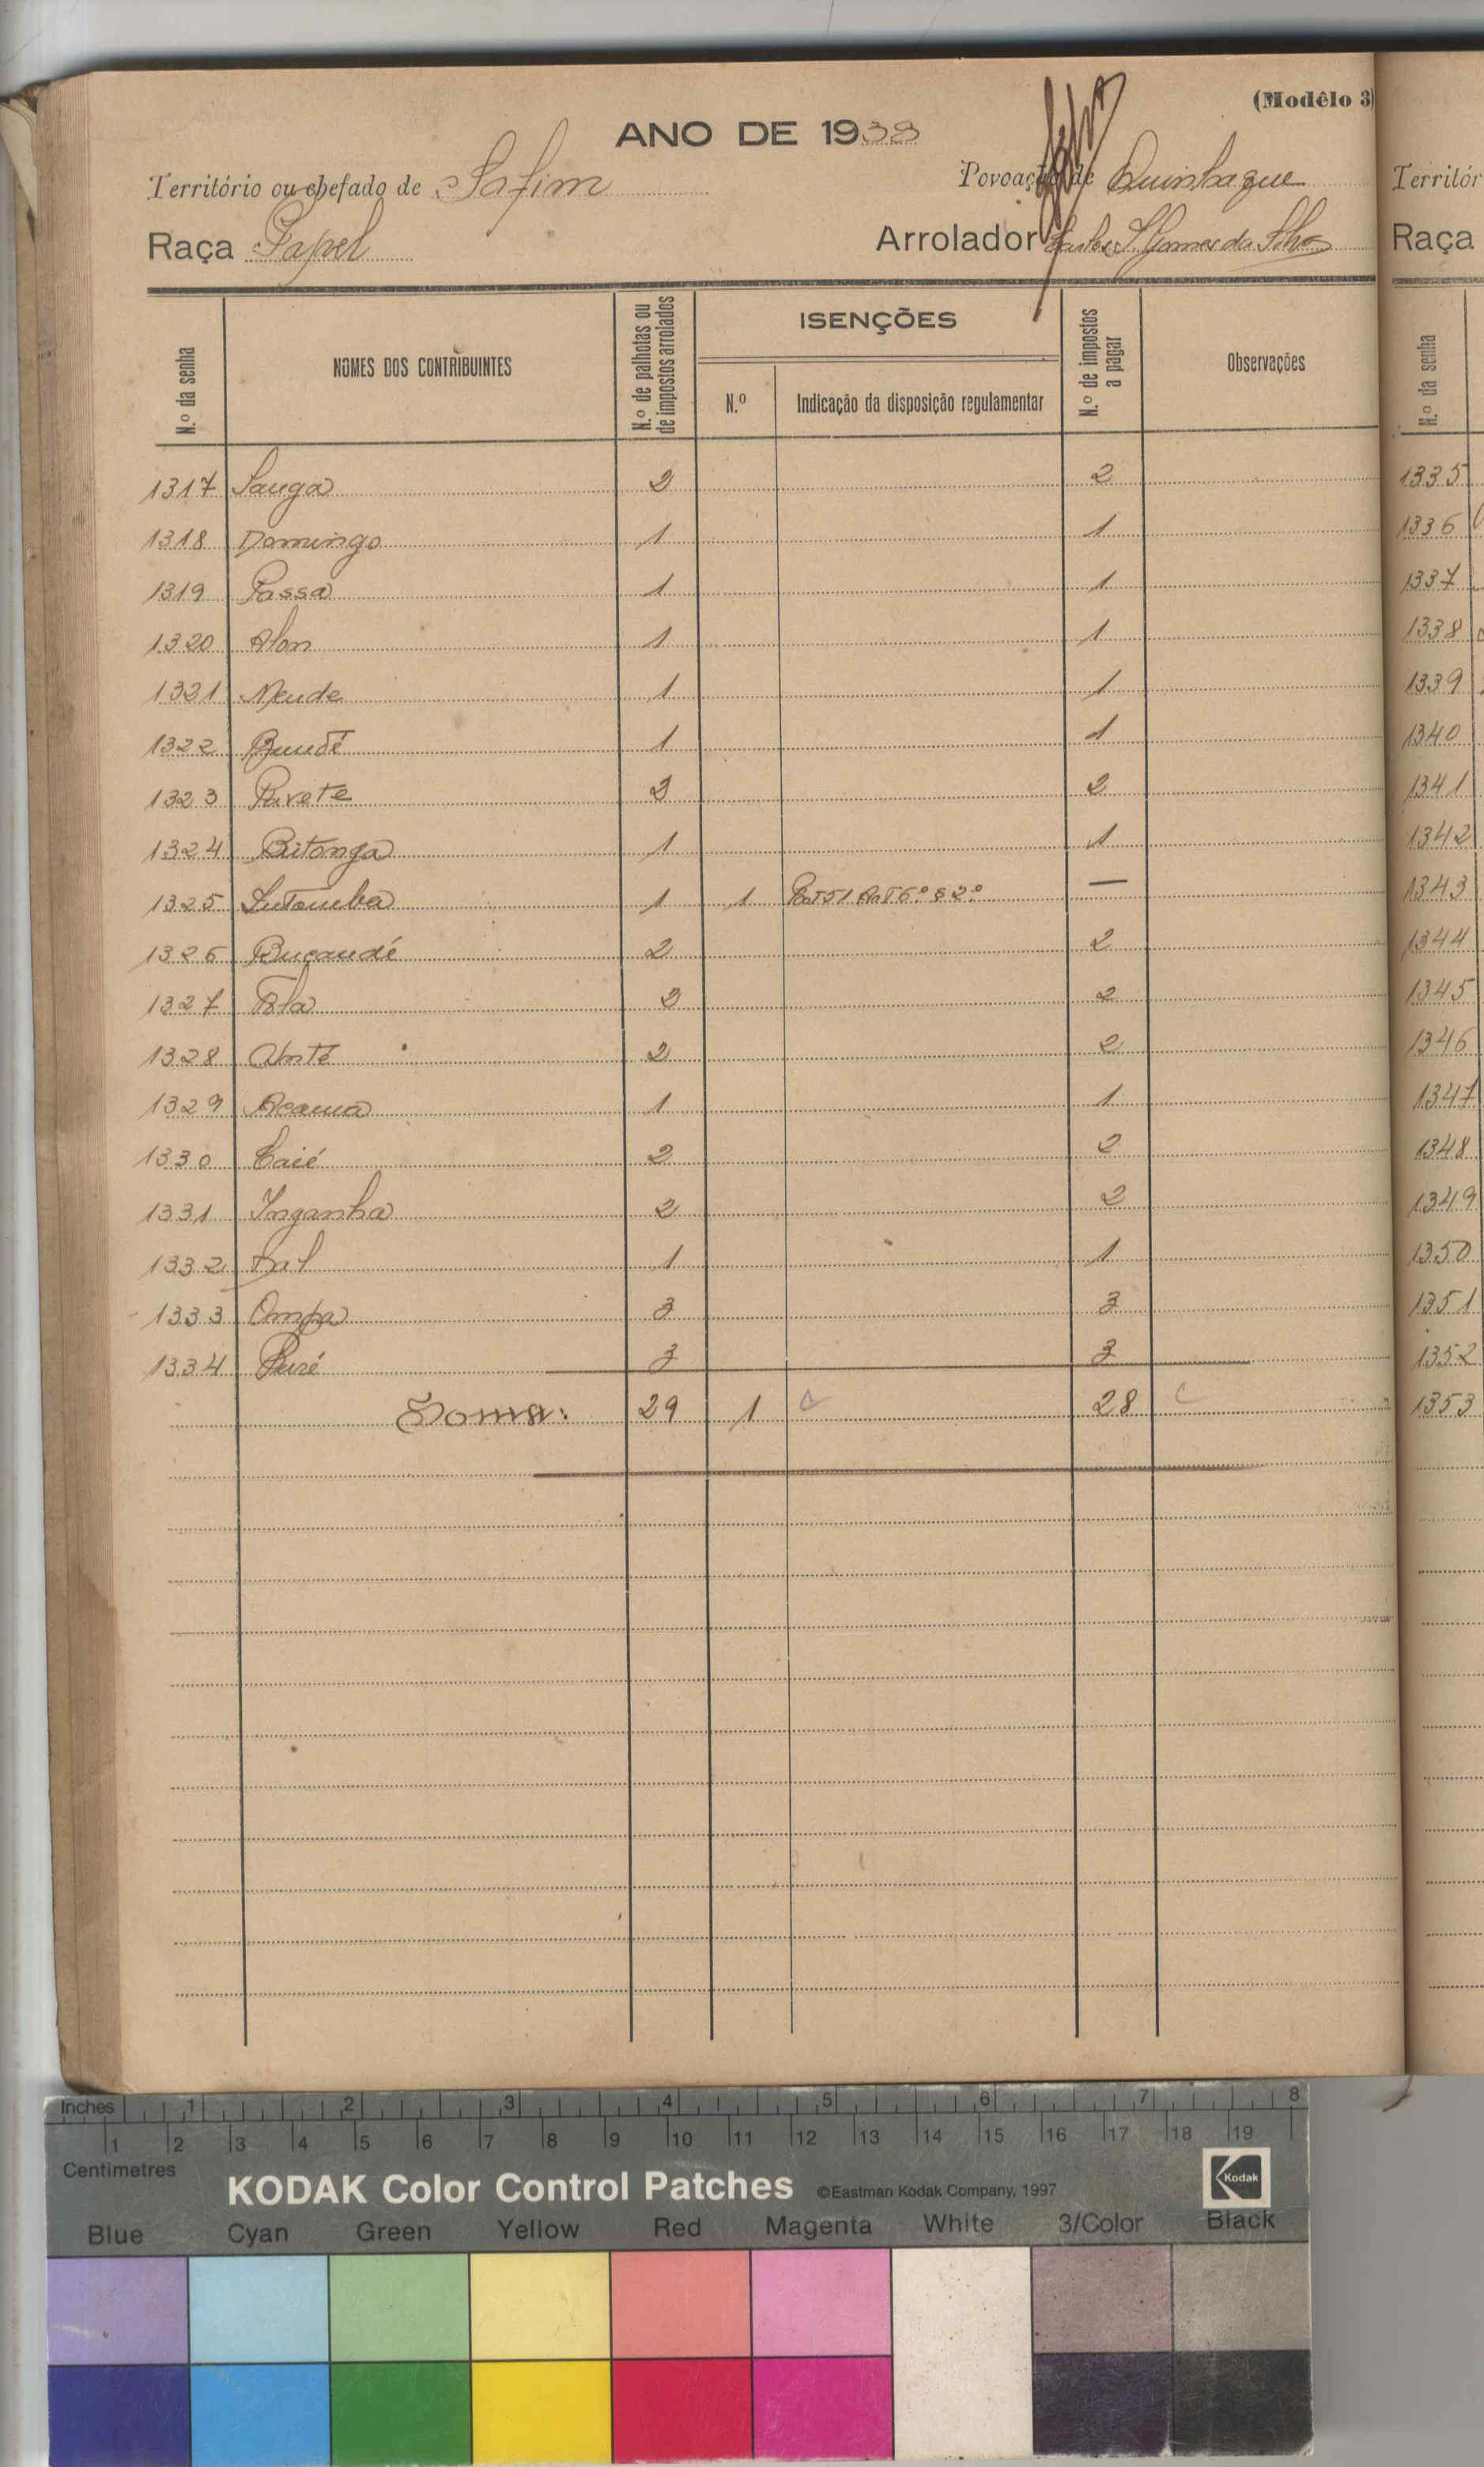 (Modêlo 3)
ANO DE 1938
Território ou chefado de Safim Povoação de Quinhaque
Raça Papel Arrolador Gomes da Silva
N.º da senha NOMES DOS CONTRIBUINTES N.º de palhotas ou de impostos arrolados ISENÇÕES N.º de impostos a pagar Observações
N.º Indicação da disposição regulamentar
1317 Sanga 2 2
1318 Domingo 1 1
1319 Passa 1 1
1320 Alon 1 1
1321 Mende 1 1
1322 1 1
1323 2 2
1324 Bitonga 1 1
1325 1 1 —
1326 Buçandé 2 2
1327 2 2
1328 2 2
1329 1 1
1330 Caié 2 2
1331 Inganha 2 2
1332 1 1
1333 Ompa 3 3
1334 3 3
Soma: 29 1 28
Territór
Raça
N.º da senha
1335
1336
1337
1338
1339
1340
1341
1342
1343
1344
1345
1346
1347
1348
1349
1350
1351
1352
1353
Inches 1 2 3 4 5 6 7 8
Centimetres 1 2 3 4 5 6 7 8 9 10 11 12 13 14 15 16 17 18 19
KODAK Color Control Patches ©Eastman Kodak Company, 1997 Kodak
Blue Cyan Green Yellow Red Magenta White 3/Color Black